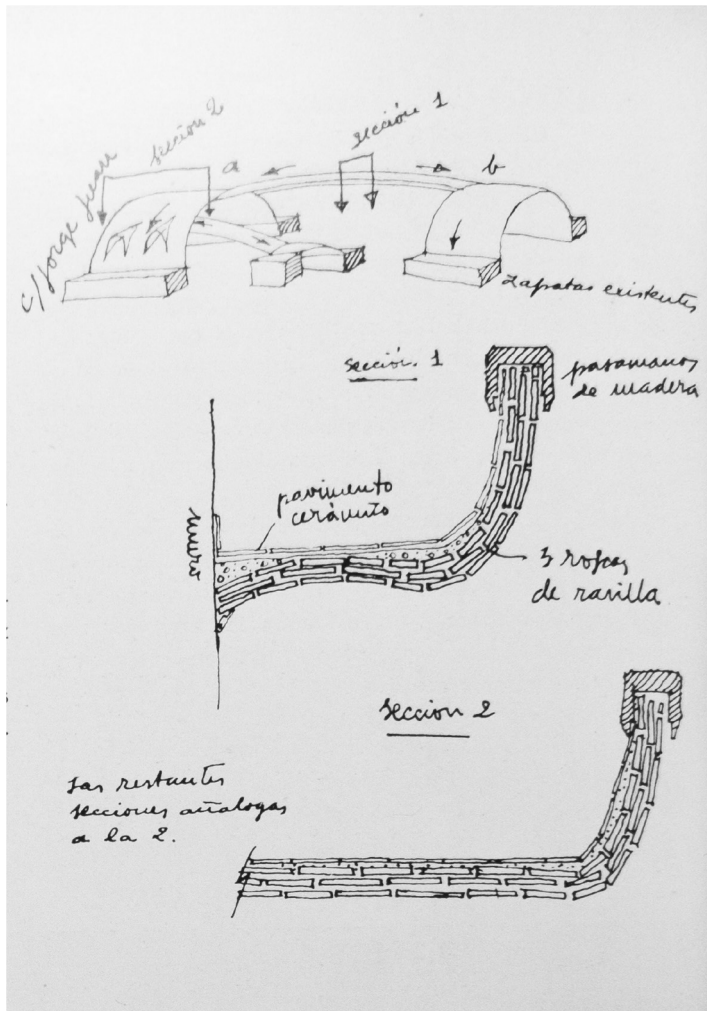 c/ Jorge Juan
sección 2
a
sección 1
b
Zapatas existentes
sección 1
pasamanos
de madera
pavimento
cerámico
muro
3 roscas
de rasilla
sección 2
Las restantes
secciones análogas
a la 2.